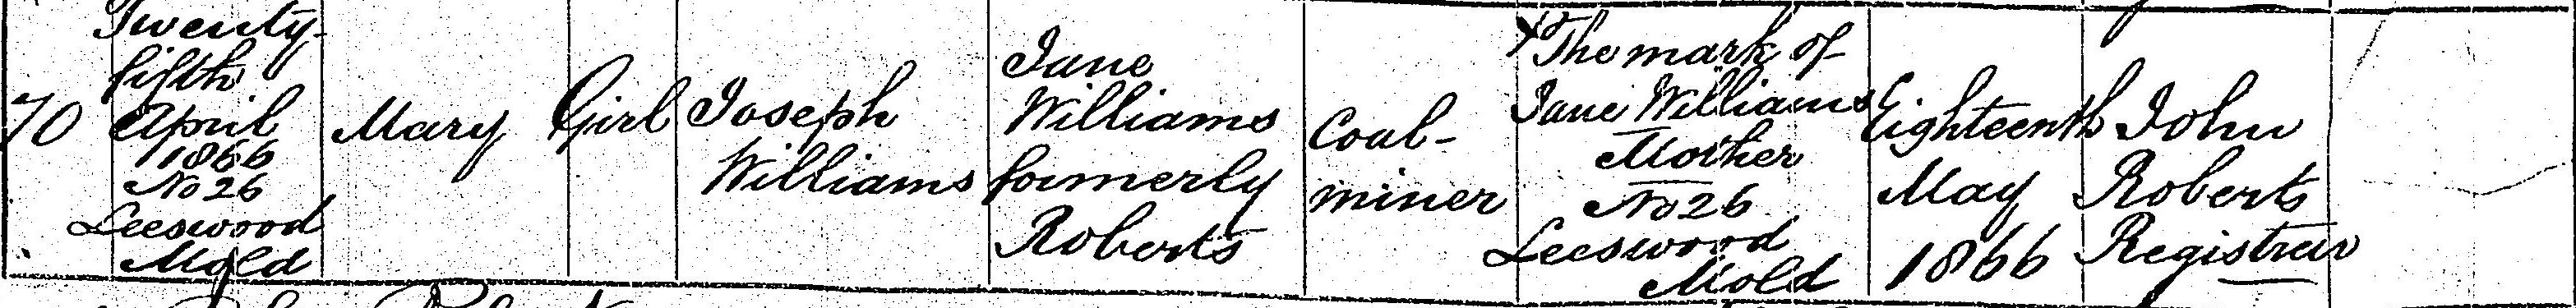 70
Twenty-
fifth
April
1866
No 26
Leeswood
Mold
Mary
Girl
Joseph
Williams
Jane
Williams
formerly
Roberts
Coal-
miner
X The mark of
Jane Williams
Mother
No 26
Leeswood
Mold
Eighteenth
May
1866
John
Roberts
Registrar